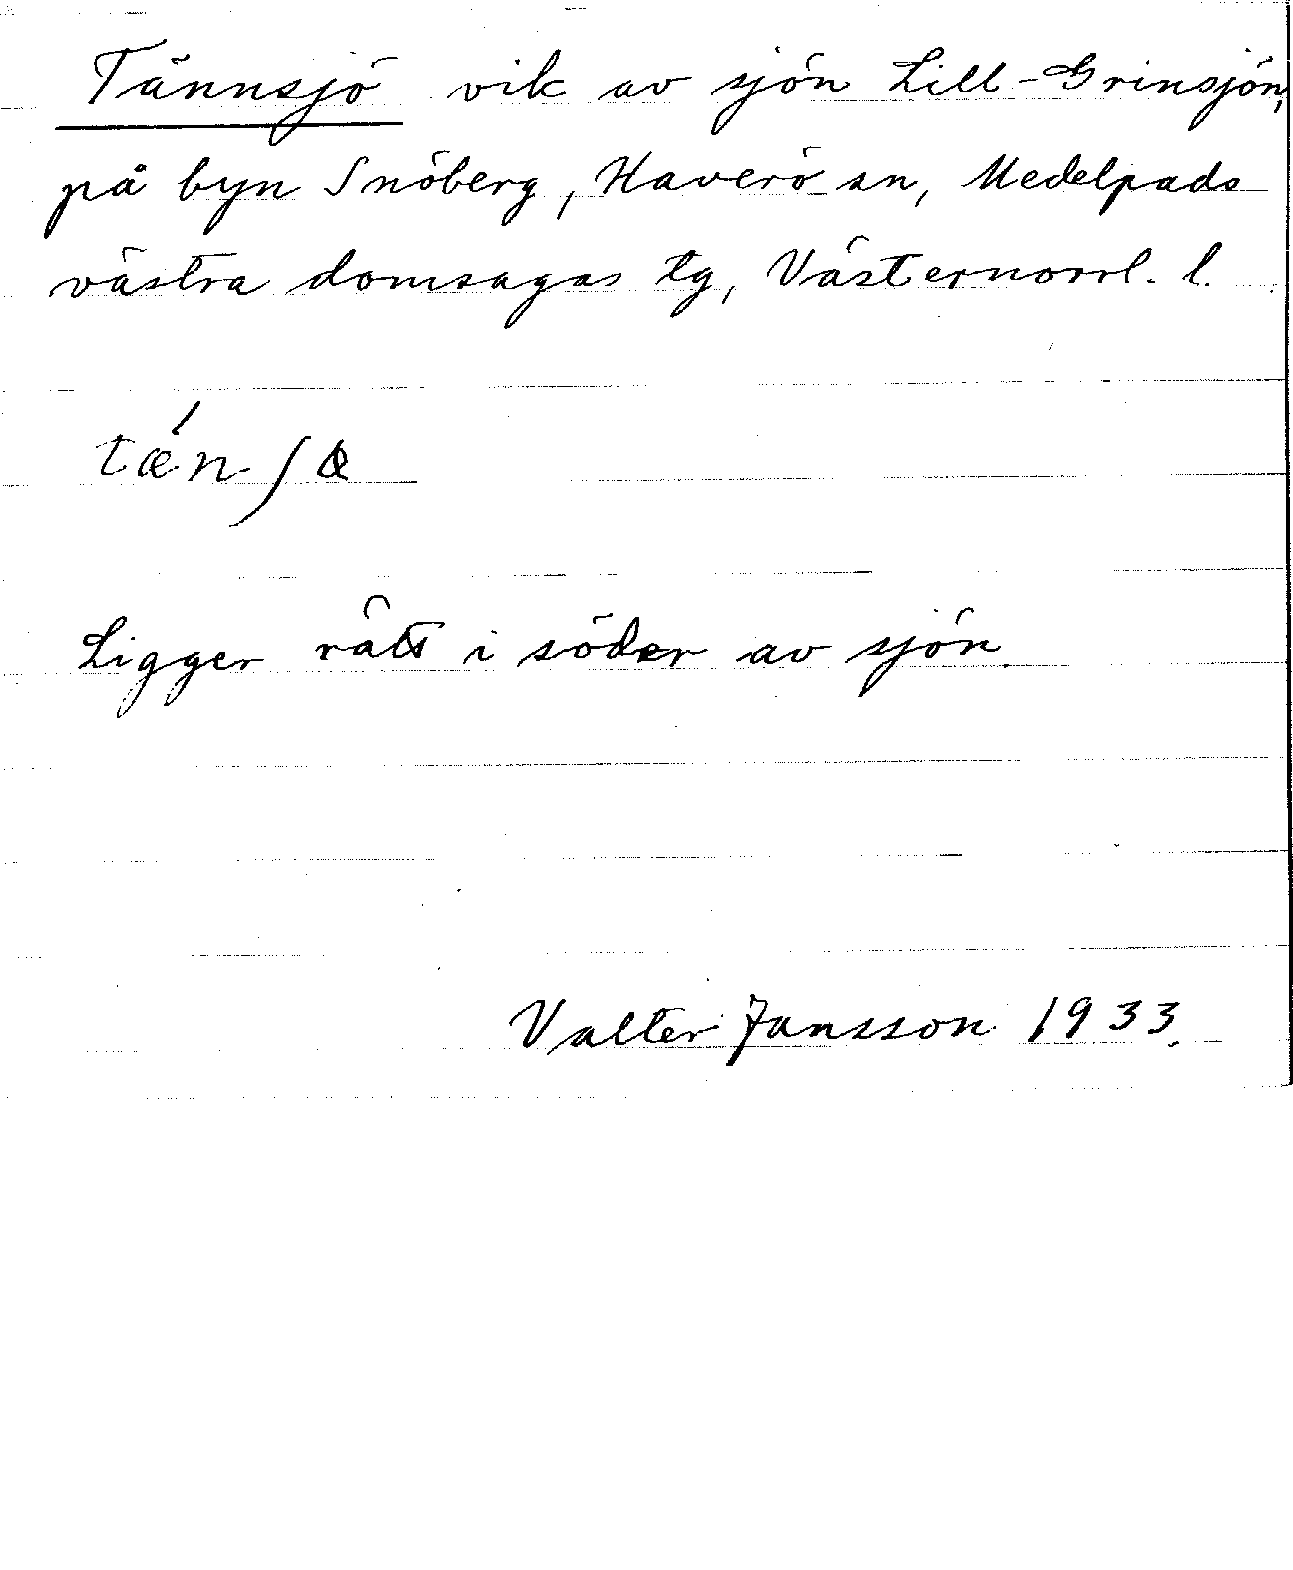 Tännsjö vik av sjön Lill-Grinsjön,
på byn Snöberg, Haverö sn, Medelpads
västra domsagas tg, Västernorrl. l.
Ligger rätt i söder av sjön.
Valter Jansson 1933.